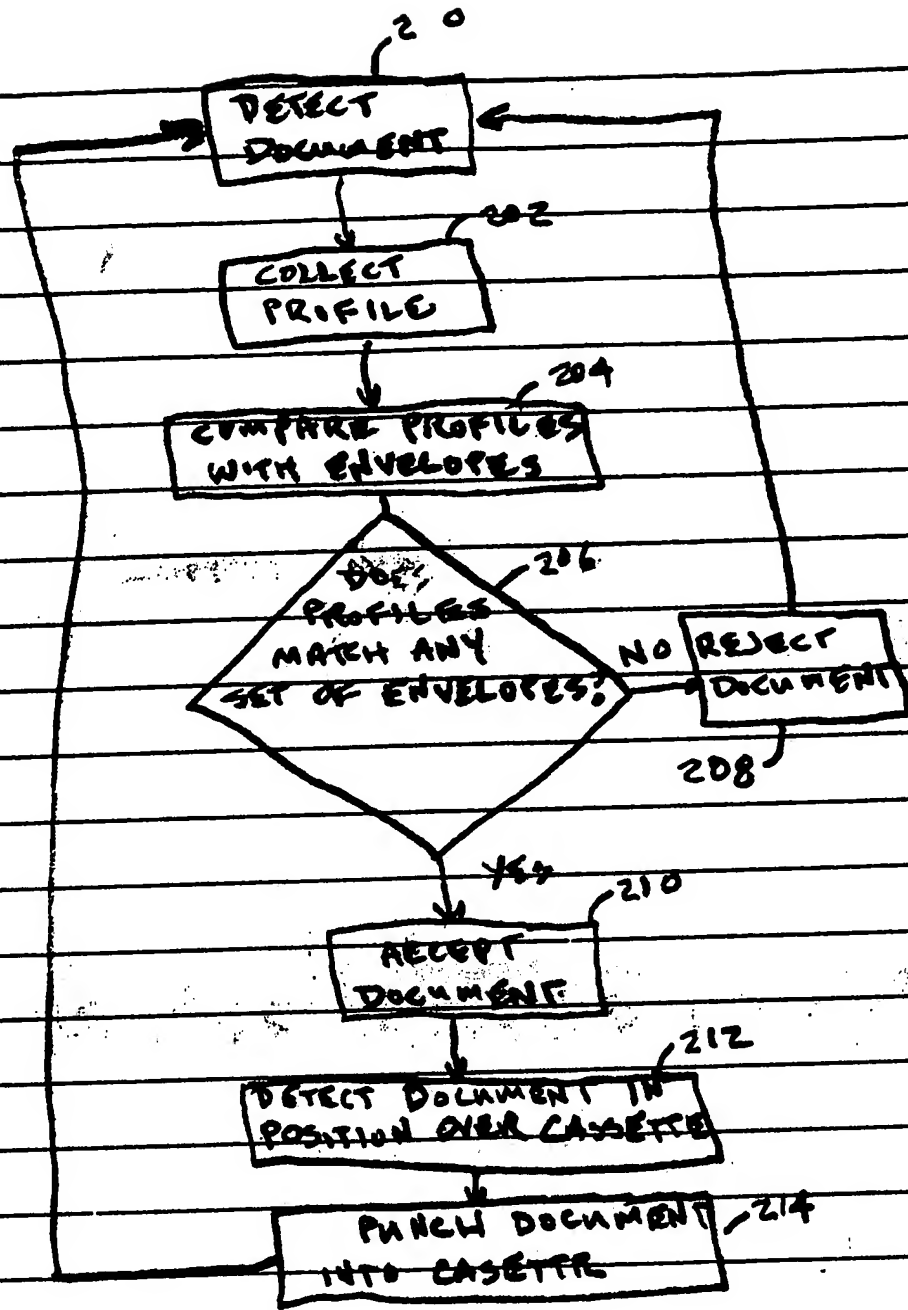 2 0
DETECT
DOCUMENT
202
COLLECT
PROFILE
204
COMPARE PROFILES
WITH ENVELOPES
206
DOES
PROFILES
MATCH ANY
SET OF ENVELOPES?
NO
REJECT
DOCUMENT
208
YES
210
ACCEPT
DOCUMENT
212
DETECT DOCUMENT IN
POSITION OVER CASSETTE
PUNCH DOCUMENT
INTO CASETTE
214